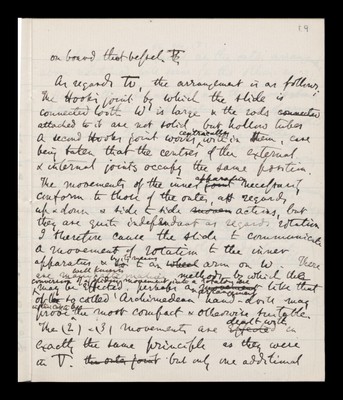 19
on board that vessel V;
As regards W, the arrangement is as follows,
The Hooks joint by which the slide is
connected with W is large & the rods connected
attached to it are not solid but hollow tubes
A second Hooks joint works centrically within them, care
being taken that the centres of the external
& internal joints occupy the same position.
The movements of the inner joint apparatus necessarily
conform to those of the outer, as regards
up & down & side to side actions, but
they are quite independant as regards rotation
I therefore cause the slide to communicate
a movement of rotation to the inner
apparatus & by it an wheel arm on to There
are well known methods by which the
converse movement into a rotatory one
may be effected; perhaps an movement like that
of the so called Archimedean hand-drill may
prove the most compact & otherwise suitable
The (2) & (3) movements are dealt with
exactly the same principle as they were
in V. the outer joint but only one additional